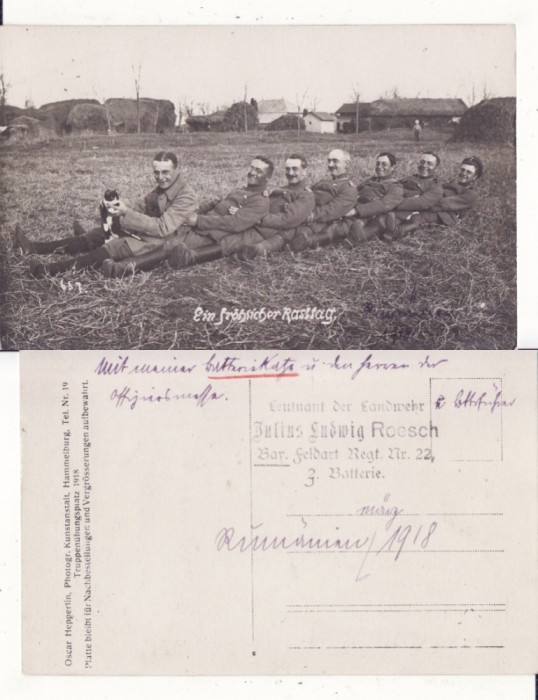 657
Ein fröhlicher Rasttag.
Mit meiner Batteriekatze u. den Herren der
Offiziersmesse.
Leutnant der Landwehr
Julius Ludwig Roesch
Bay. Feldart Regt. Nr. 22,
3. Batterie.
März
Rumänien / 1918
Oscar Hepperlin, Photogr. Kunstanstalt, Hammelburg, Tel. Nr. 19
Truppenübungsplatz 1918
Platte bleibt für Nachbestellungen und Vergrösserungen aufbewahrt.